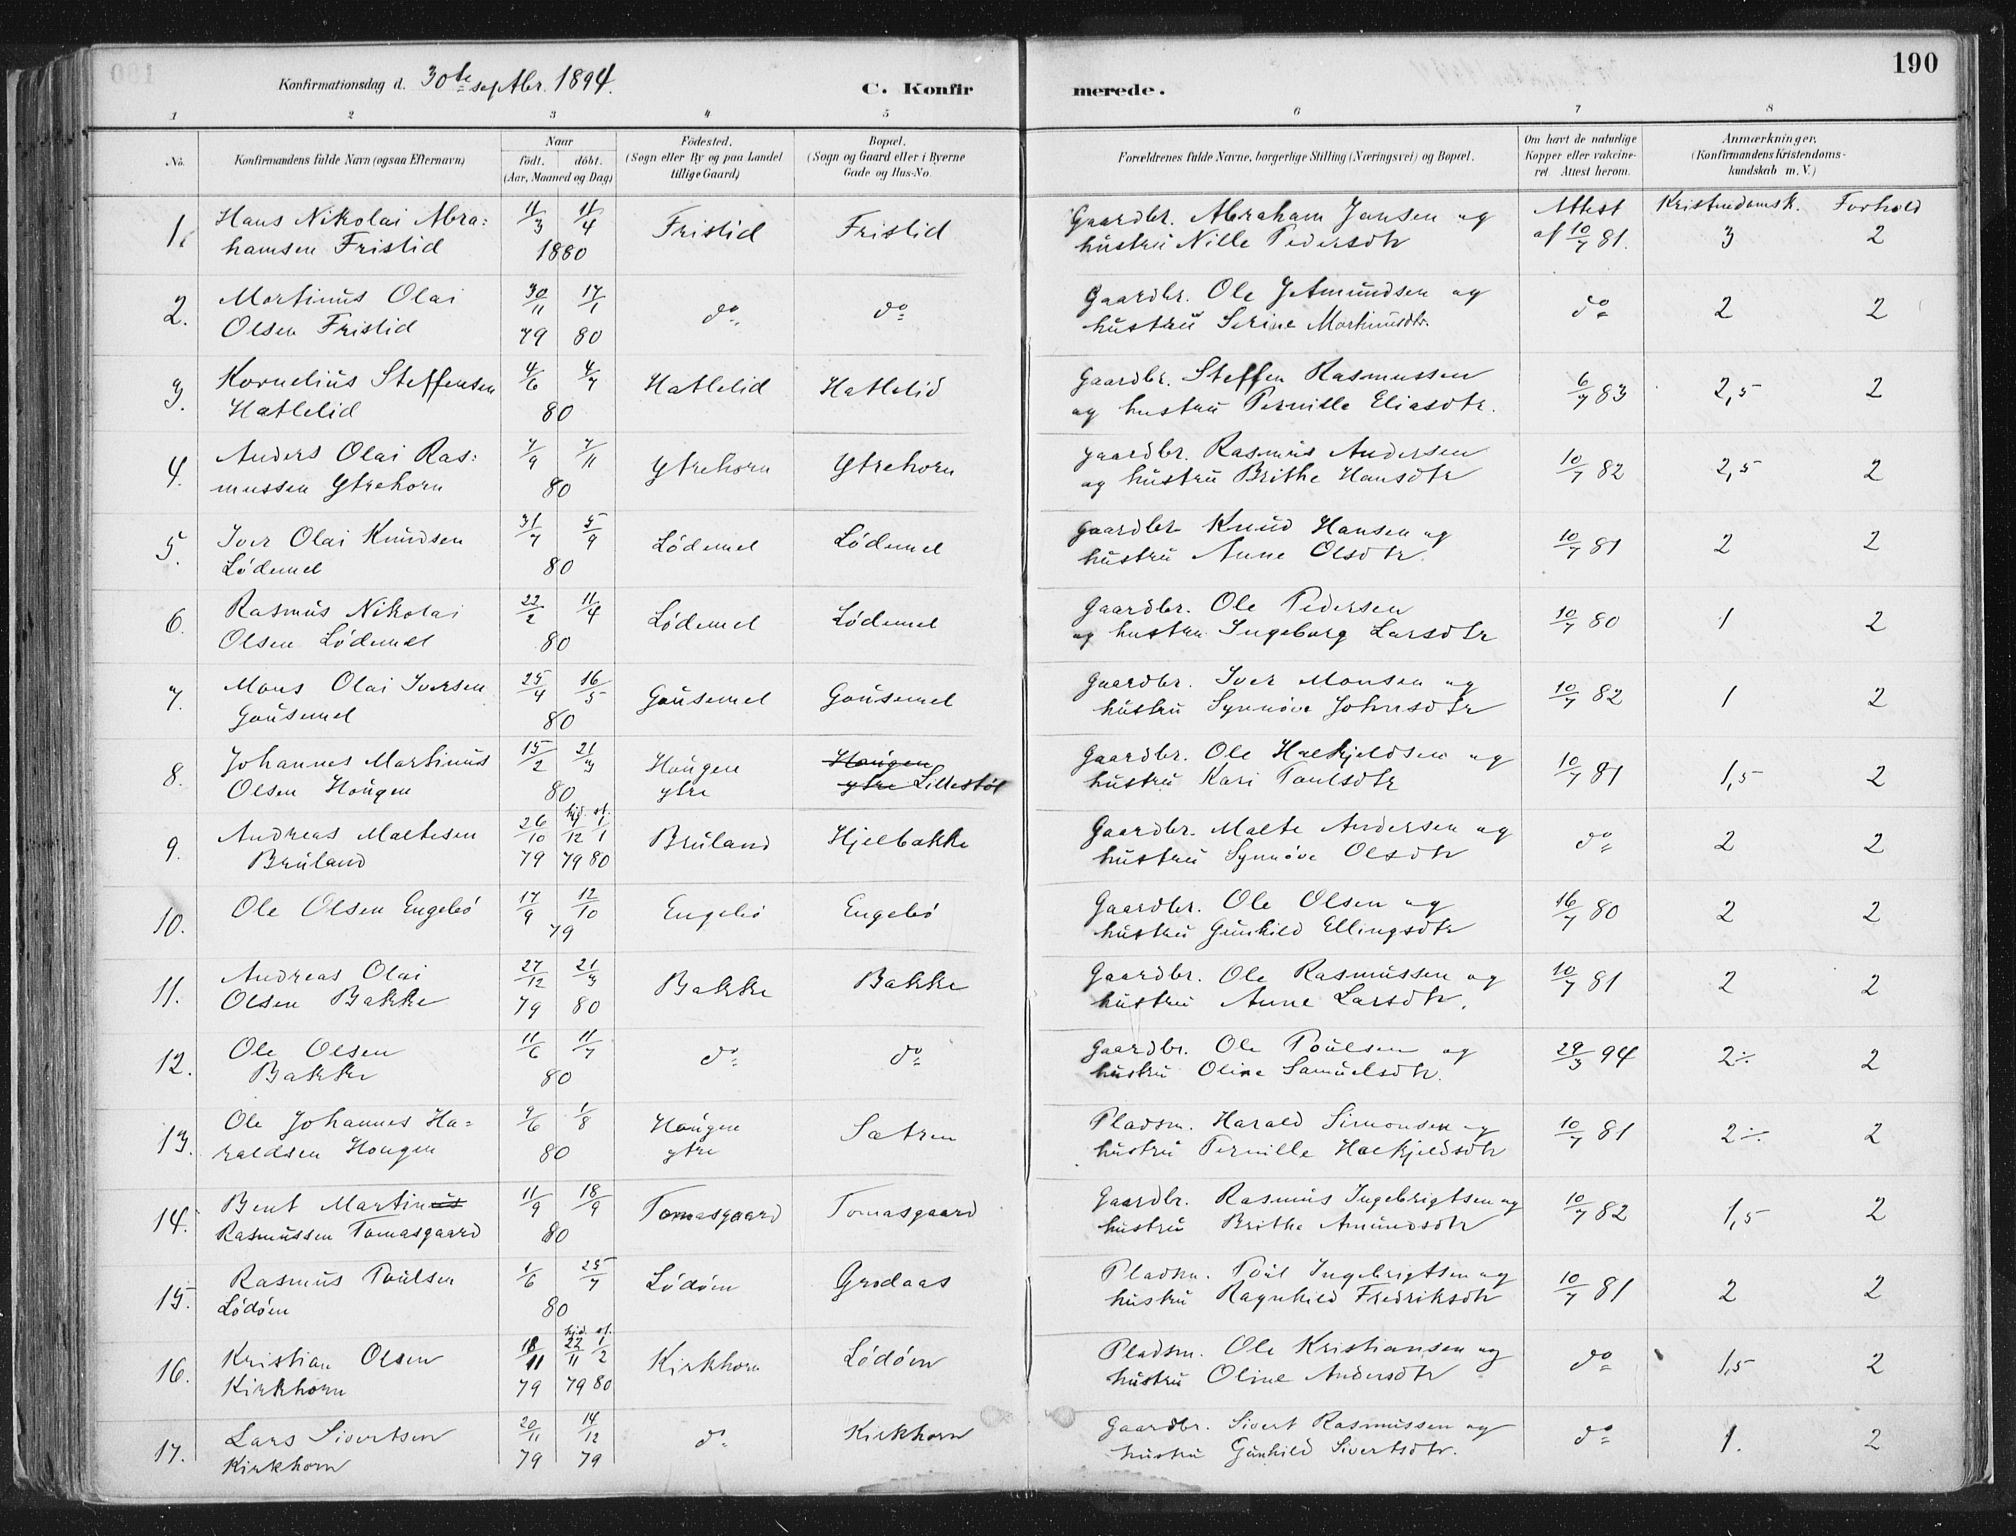 190
Konfirmationsdag d. 30te septbr. 1894.
C. Konfirmerede.
1 2 3 4 5 6 7 8
No.
Konfirmandens fulde Navn (ogsaa Efternavn)
Naar
födt. döbt.
(Aar, Maaned og Dag)
Födested.
(Sogn eller By og paa Landet
tillige Gaard)
Bopæl.
(Sogn og Gaard eller i Byerne
Gade og Hus-No.
Forældrenes fulde Navne, borgerlige Stilling (Næringsvei) og Bopæl.
Om havt de naturlige
Kopper eller vakcine-
ret. Attest herom.
Anmærkninger.
(Konfirmandens Kristendoms-
kundskab m. V.)
Kristendomsk. Forhold
1. Hans Nikolai Abra- 11/3 11/4 Fristid Fristid Gaardbr. Abraham Jansen og Attest
hamsen Fristid 1880 hustru Nille Pedersdtr af 10/7 81. 3 2
2. Martinus Olai 30/11 17/1 do do Gaardbr. Ole J. Amundsen og do 2 2
Olsen Fristid 79 80 hustru Serine Martinusdtr.
3. Kornelius Steffensen 4/6 4/7 Hatlelid Hatlelid Gaardbr. Steffen Rasmussen 6/7 83 2,5 2
Hatlelid 80 og hustru Pernille Eliasdtr.
4. Anders Olai Ras- 7/9 7/11 Ytrehorn Ytrehorn gaardbr. Rasmus Andersen 10/7 82 2,5 2
mussen Ytrehorn 80 og hustru Brithe Hansdtr
5. Iver Olai Knudsen 31/7 5/9 Lödemel Lödemel gaardbr Knud Hansen og 10/7 81 2 2
Lödemel 80 hustru Anne Olsdtr.
6. Rasmus Nikolai 22/2 11/4 Lödemel Lödemel Gaardbr. Ole Pedersen 10/7 80 1 2
Olsen Lödemel 80 og hustru Ingeborg Larsdtr
7. Mons Olai Iversen 25/4 16/5 Gausemel Gausemel Gaardbr. Iver Monsen og 10/7 82 1 2
Gausemel 80 hustru Synnöve Johnsdtr
8. Johannes Martinus 15/2 21/3 Hougen Hougen Gaardbr. Ole Halkjeldsen og 10/7 81 1,5 2
Olsen Hougen 80 ytre ytre Lillestöl hustru Kari Poulsdtr
9. Andreas Maltesen 26/10 hjd. st. 1/1 Bruland Hjelbakke Gaardbr. Malte Andersen og do 2 2
Bruland 79 79 80 hustru Synnöve Olsdtr
10. Ole Olsen Engebö 17/9 12/10 Engebö Engebö Gaardbr. Ole Olsen og 16/7 80 2 2
79 hustru Gunhild Ellingsdtr
11. Andreas Olai 27/12 21/3 Bakke Bakke Gaardbr. Ole Rasmussen og 10/7 81 2 2
Olsen Bakke 79 80 hustru Anne Larsdtr.
12. Ole Olsen 11/6 11/7 do do Gaardbr. Ole Poulsen og 29/3 94 2÷ 2
Bakke 80 hustru Oline Samuelsdtr.
13. Ole Johannes Ha- 9/6 1/8 Hougen Satren Pladsm. Harald Simonsen og 10/7 81 2÷ 2
raldsen Hougen 80 ytre hustru Pernille Halkjeldsdtr
14. Bent Martinus 11/9 18/9 Tomasgaard Tomasgaard Gaardbr. Rasmus Ingebrigtsen og 10/7 82 1,5 2
Rasmussen Tomasgaard 80 hustru Brithe Amundsdtr
15. Rasmus Poulsen 1/6 25/7 Lödöm Grodaas Pladsm. Poul Ingebrigtsen og 10/7 81 2 2
Lödöm 80 hustru Ragnhild Fredriksdtr
16. Kristian Olsen 18/11 hjd. 22/11 st. 1/2 Kirkhorn Lödöm Pladsm. Ole Kristiansen og do 1,5 2
Kirkhorn 79 79 80 hustru Oline Andersdtr
17. Lars Sivertsen 20/11 14/12 do Kirkhorn Gaardbr. Sivert Rasmussen og do 1. 2
Kirkhorn 79 79 hustru Gunhild Sivertsdtr.